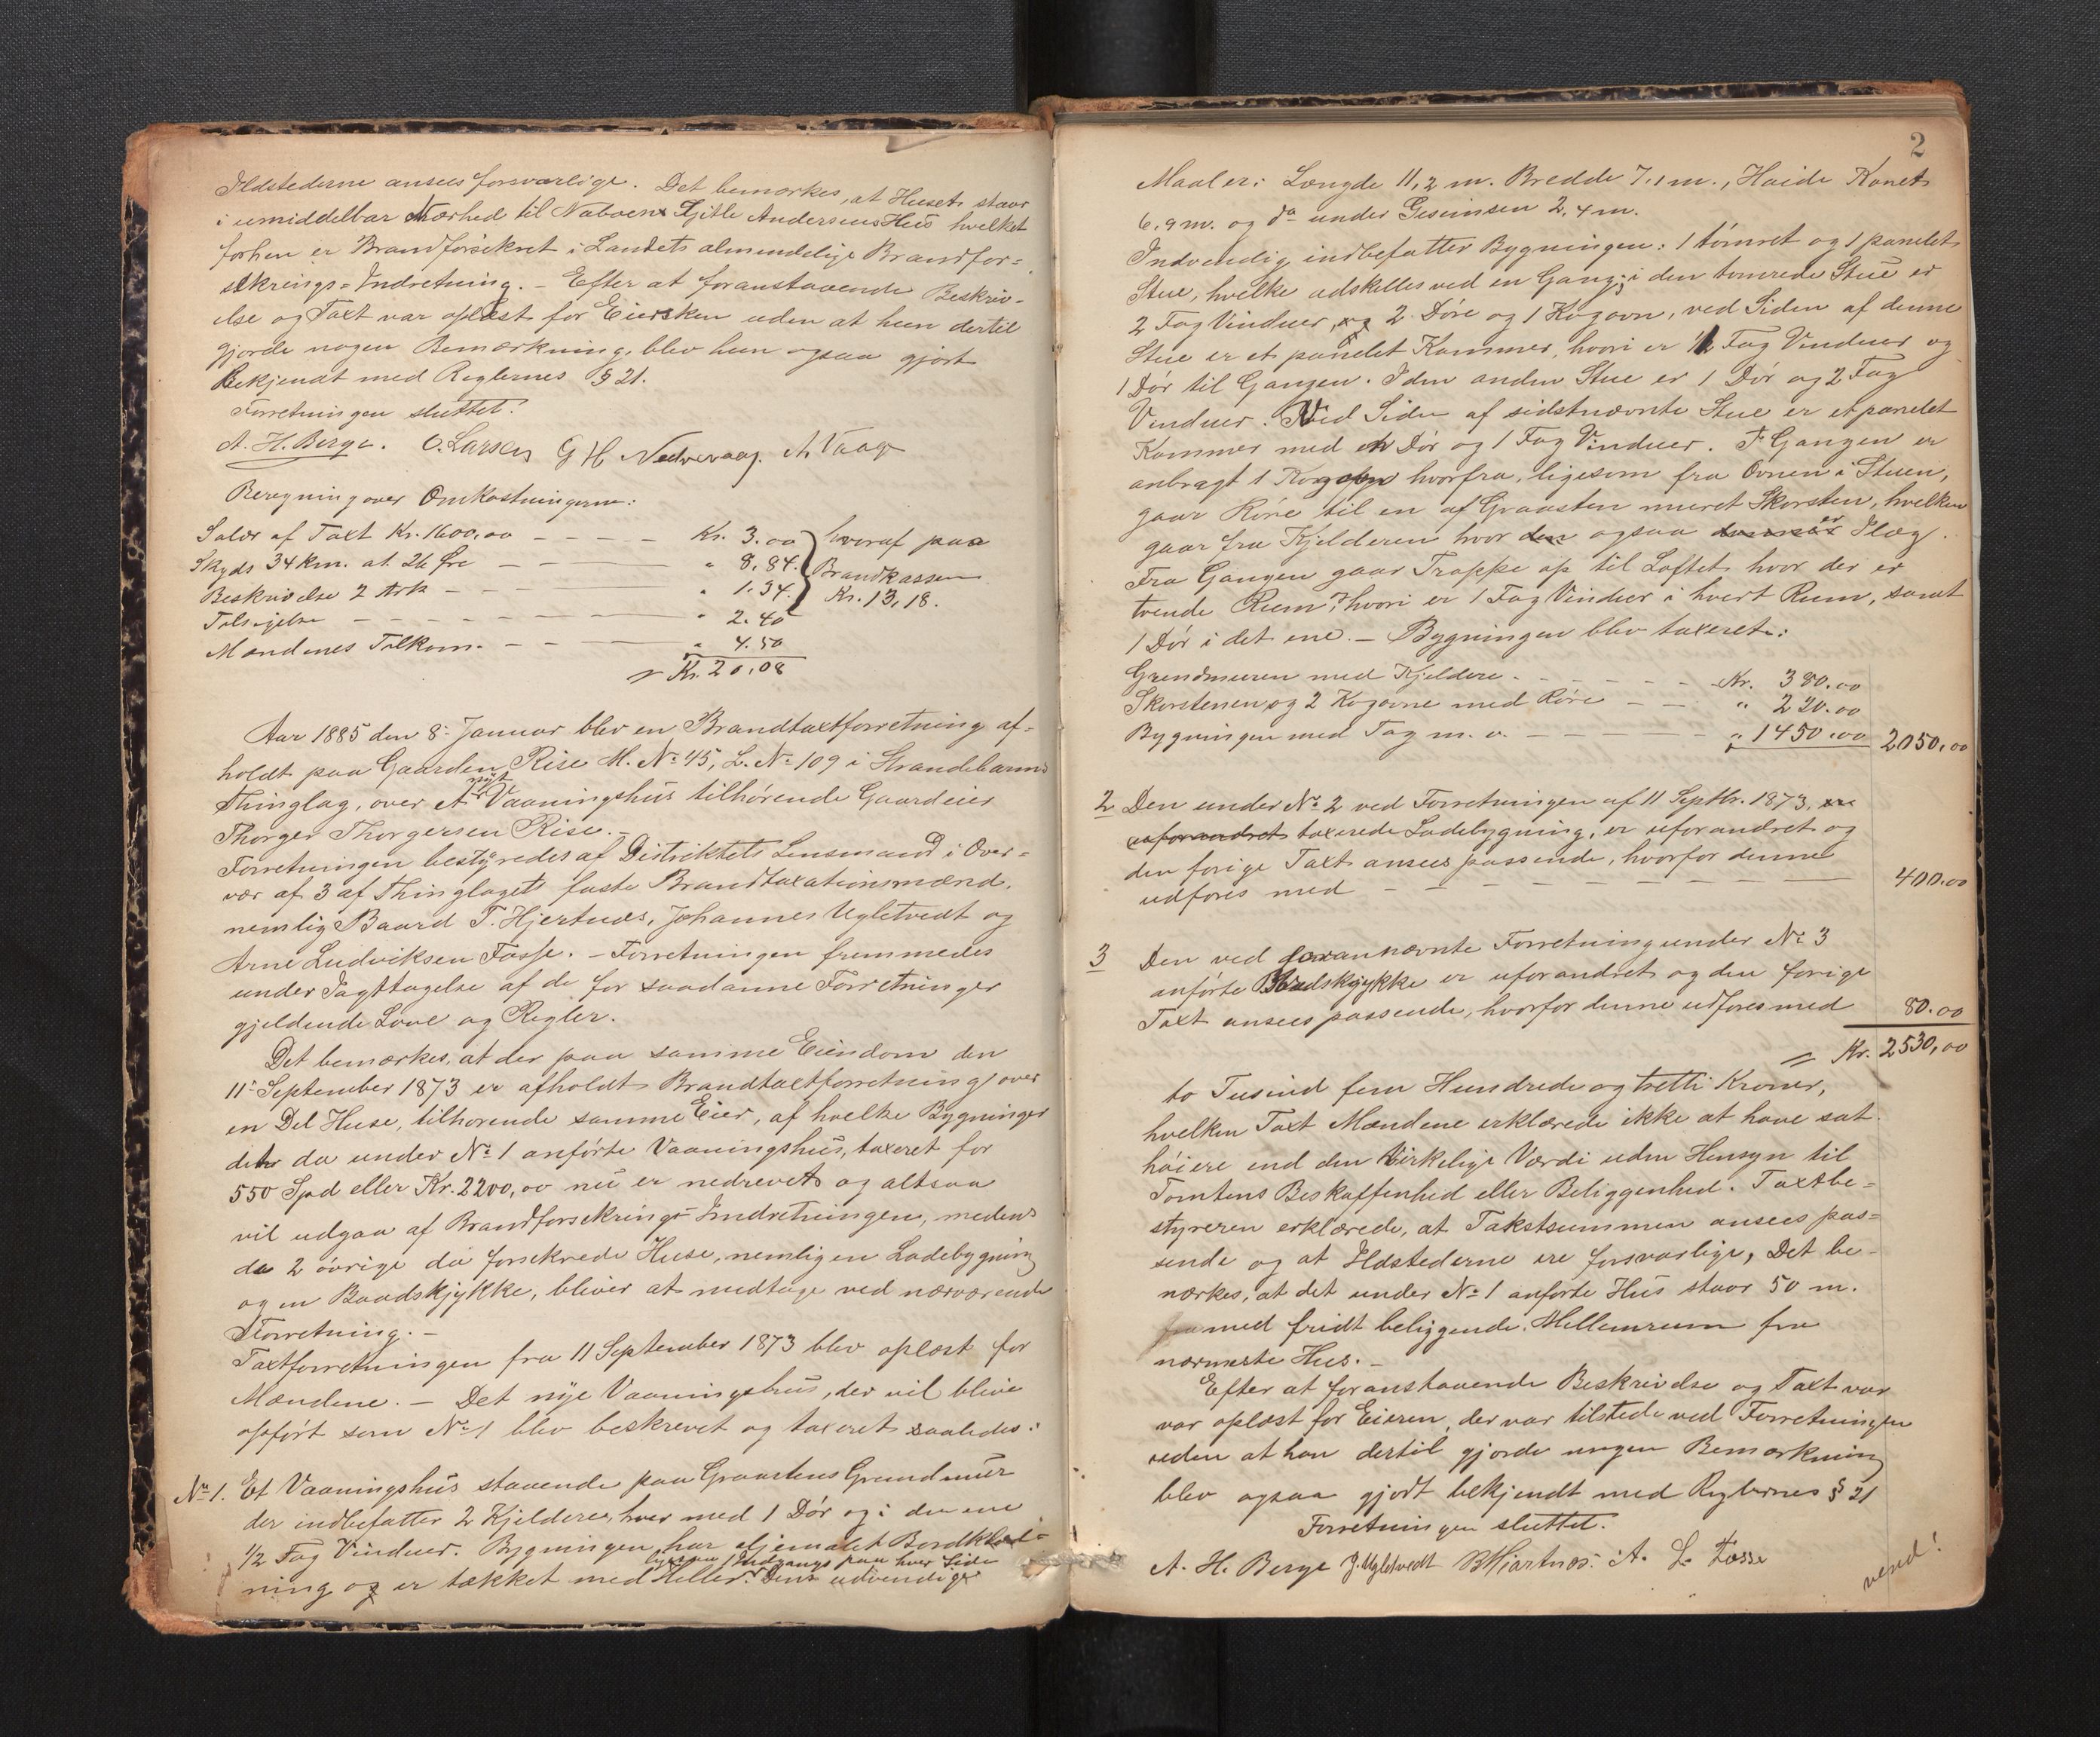 Ildstederne ansees forsvarlige. Det bemærkes, at Huset staar
i umiddelbar Nærhed til Naboens Kjitle Andersens Hus hvilket
forhen er Brandforsikret i Landets almindelige Brandfor-
sikrings-Indretning. - Efter at foranstaaende Beskriv-
else og Taxt var oplæst for Eiersken uden at hun dertil
gjorde nogen Bemærkning, blev hun ogsaa gjort
Bekjendt med Reglernes § 21.
Forretningen sluttet.
A. H. Berge. O. Larsen G H Nedrevaag. A. Vaage
Beregning over Omkostningerne:
Salær af Taxt Kr. 1600,00 - - - - Kr. 3.00 } hvoraf paa
Skyds 34 Km. at 26 Øre - - - " 8,84. } Brandkassen
Beskrivelse 2 Ark - - - " 1.34. } Kr. 13,18.
Tilsigelse - - - - - " 2.40
Mændenes Tilkom. - - - " 4.50
= Kr. 20,08
Aar 1885 den 8- Januar blev en Brandtaxtforretning af-
holdt paa Gaarden Rise M. No 45, L. No 109 i Strandebarms
Thinglag, over et nyt Vaaningshus tilhørende Gaardeier
Thorger Thorgersen Rise. -
Forretningen bestyredes af Distriktets Lensmand i Over-
vær af 3 af Thinglagets faste Brandtaxationsmænd,
nemlig Baard T. Hjertnæs, Johannes Ugletvedt og
Arne Ludviksen Fosse. - Forretningen fremmedes
under Iagttagelse af de for saadanne Forretninger
gjeldende Love og Regler.
Det bemærkes, at der paa samme Eiendom den
11- September 1873 er afholdt Brandtaxtforretning over
en Del Huse, tilhørende samme Eier, af hvilke Bygninger
det da under No 1 anførte Vaaningshus, taxeret for
550 Spd eller Kr. 2200,00 nu er nedrevet og altsaa
vil udgaa af Brandforsikrings-Indretningen, medens
de 2 øvrige da forsikrede Huse, nemlig en Ladebygning
og en Baadskjykke, bliver at medtage ved nærværende
Forretning. -
Taxtforretningen fra 11 September 1873 blev oplæst for
Mændene. - Det nye Vaaningshus, der vil blive
opført som No 1 blev beskrevet og taxeret saaledes:
No 1. Et Vaaningshus staaende paa Graastens Grundmur
der indbefatter 2 Kjeldere, hver med 1 Dør og i den ene
1/2 Fag Vinduer. Bygningen har oljemalet Bordklæd-
1 Indgangs paa hver Side
ning og er tækket med Heller. Dens udvendige
2
Maal er: Længde 11,2 m. Bredde 7,1 m., Høide Kanet
6,9 m. og do under Gesimsen 2,4 m.
Indvendig indbefatter Bygningen: 1 tømret og 1 panelet
Stue, hvilke adskilles ved en Gang; i den tømrede Stue er
2 Fag Vinduer, og 2 Døre og 1 Kogovn, ved Siden af denne
Stue er et panelet Kammer, hvori er 1/2 Fag Vinduer og
1 Dør til Gangen. I den anden Stue er 1 Dør og 2 Fag
Vinduer. Ved Siden af sidstnævnte Stue er et panelet
Kammer med en Dør og 1 Fag Vinduer. I Gangen er
anbragt 1 Kogovn hvorfra, ligesom fra Ovnen i Stuen,
gaar Rørie til en af Graasten muret Skorsten, hvilken
gaar fra Kjelderen hvor den ogsaa Ilæg.
Fra Gangen gaar Trappe op til Loftet hvor der er
tvende Rum, hvori er 1 Fag Vinduer i hvert Rum, samt
1 Dør i det ene. - Bygningen blev taxeret:
Grundmuren med Kjeldere - - - - - Kr. 380.00
Skorstenen og 2 Kogovne med Røre - - " 220.00
Bygningen med Tag m. v. - - - - " 1450.00 2050,00
2 Den under No 2 ved Forretningen af 11 Septbr. 1873, er
uforandret taxerede Ladebygning, er uforandret og
den forige Taxt ansees passende, hvorfor denne
udføres med - - - - - - - - 400.00
3 Den ved forannævnte Forretning under No 3
anførte Baadskjykke er uforandret og den forige
Taxt ansees passende, hvorfor denne udføres med 80.00
= Kr. 2530,00
to Tusind fem Hundrede og tretti Kroner,
hvilken Taxt Mændene erklærede ikke at have sat
høiere end den Virkelige Værdi uden Hensyn til
Tomtens Beskaffenhed eller Beliggenhed. Taxtbe-
styreren erklærede, at Takstsummen ansees pas-
sende og at Ildstederne ere forsvarlige, Det be-
mærkes, at det under No 1 anførte Hus staar 50 m.
fra med fridt beliggende Mellemrum fra
nærmeste Hus. -
Efter at foranstaaende Beskrivelse og Taxt var
var oplæst for Eieren, der var tilstede ved Forretningen
uden at han dertil gjorde nogen Bemærkning
blev ogsaa gjort bekjendt med Reglernes § 21
Forretningen sluttet.
A. H. Berge J. Ugletvedt B Hjartnæs. A. L. Fosse
vend!